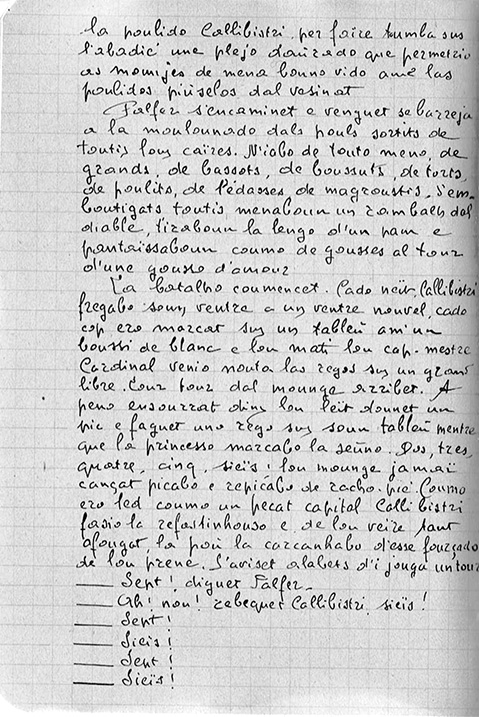 la poulido Callibistri, per faire toumba sus
l'abadié une plejo daurado que permetrio
as mounjes de mena bouno vido amé las
poulidos piuselos dal vesinat
Falfer s'encaminet e venguet se barreja
a la moulounado dals pouls sortits de
toutis lous caïres. N'iabo de touto meno, de
grands, de bassots, de boussuts, de torts,
de poulits, de lédasses de magroustis. S'em-
boutigats toutis menaboun un rambalh dal
diable, tiraboun la lengo d'un pam e
pantaissaboun coumo de gousses al tour
d'une gousso d'amour
La batalho coumencet. Cado neït, Callibistri
fregabo soun ventre a un ventre nouvel, cado
cop ero marcat sus un tableü am'un
boussi de blanc e lou mati lou cap-mestre
Cardinal venio nouta las regos sus un grand
libre. Lour tour dal mounge arribet. A
peno ensourrat dins lou leit dounet un
pic e faguet uno rego sus soun tableü mentre
que la princesso marcabo la seüno. Dos, tres,
quatre, cinq, sieïs ! lou mounge jamaï
cançat picabo e repicabo de racho-pié. Coumo
ero led coumo un pecat capital Callibistri
fasio la refastinhouso e de lou veire tant
afougat, la poü la carcanhabo d'esse fourçado
de lou prene. S'aviset alabets d'i jouga un tour
— Sept ! diguet Falfer.
— Ah ! nou ! rebequet Callibistri, sieïs !
— Sept !
— Sieïs !
— Sept !
— Sieïs !